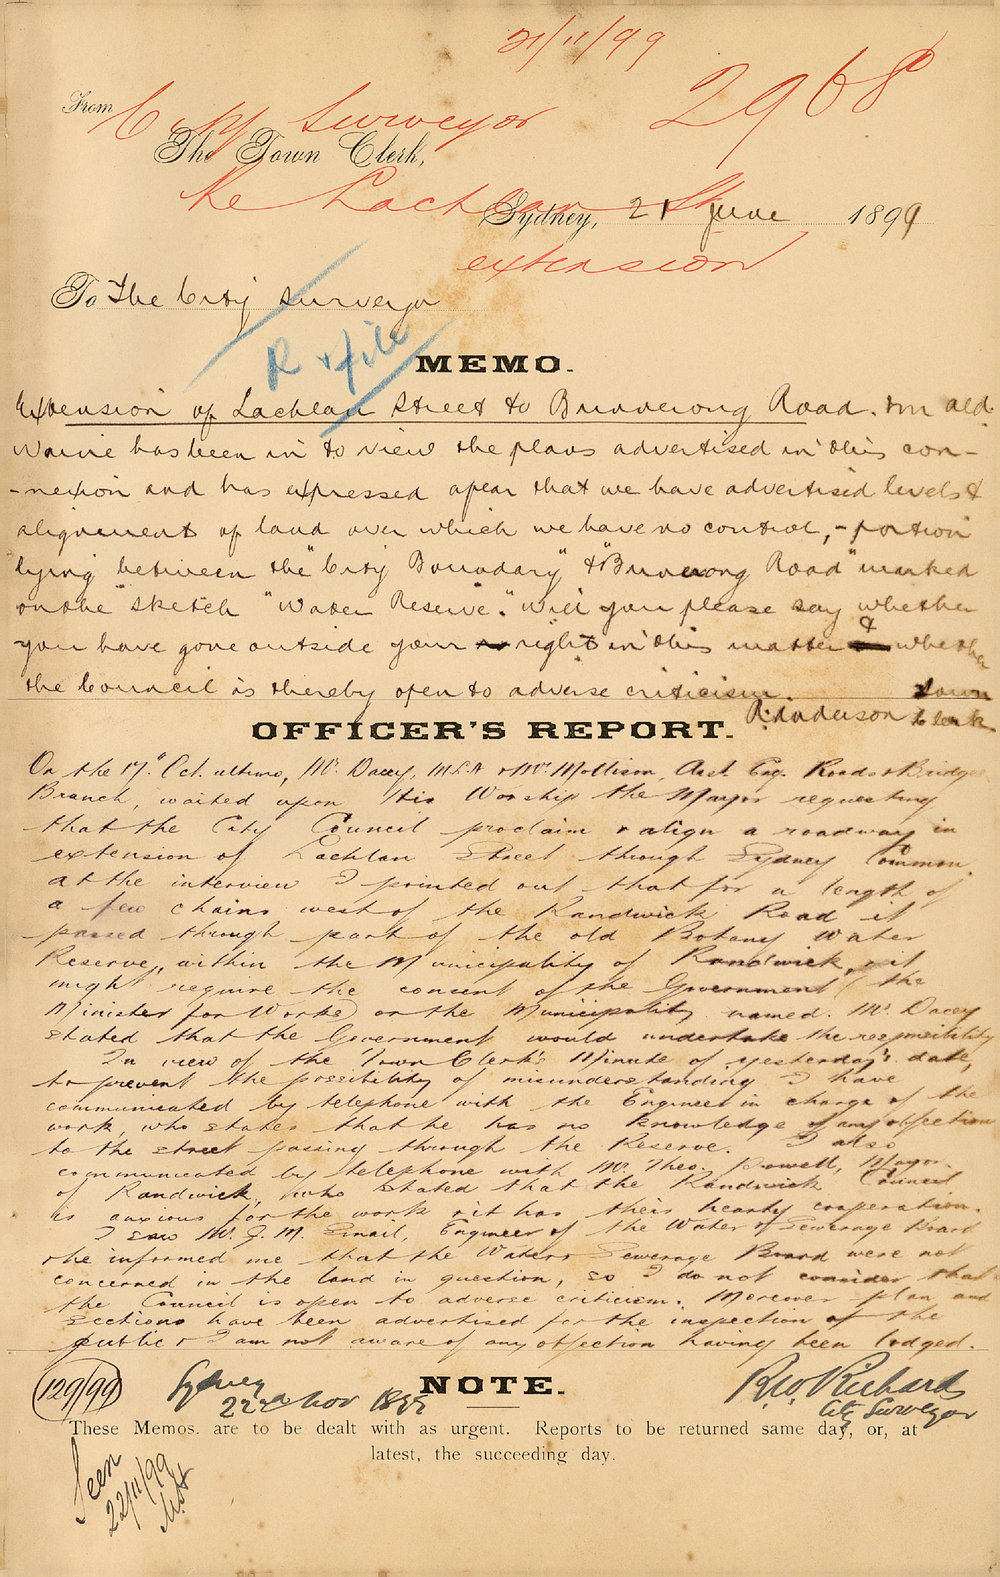 21/11/99
2968
From
City Surveyor
The Town Clerk,
Re Lachlan St
Sydney, 21 June 1899
extension
To The City Surveyor
R & file
MEMO.
Extension of Lachlan Street to Bunnerong Road. Ald.
Waine has been in to view the plans advertised in this con-
-nexion and has expressed a fear that we have advertised levels &
alignments of land over which we have no control, - portion
lying between the "City Boundary" & "Bunnerong Road" marked
on the sketch "Water Reserve". Will you please say whether
you have gone outside your right in this matter & whether
the Council is thereby open to adverse criticism.
R. Anderson Town Clerk
OFFICER'S REPORT.
On the 17th Oct. ultimo, Mr. Dacey, MLA & Mr. Mollison, Asst. Eng. Roads & Bridges
Branch, waited upon His Worship the Mayor requesting
that the City Council proclaim & align a roadway in
extension of Lachlan Street through Sydney Common.
At the interview I pointed out that for a length of
a few chains west of the Randwick Road it
passed through part of the old Botany Water
Reserve, within the Municipality of Randwick, & it
might require the consent of the Government (the
Minister for Works) or the Municipality named. Mr. Dacey
stated that the Government would undertake the responsibility
In view of the Town Clerk's Minute of yesterday's date,
to prevent the possibility of misunderstanding I have
communicated by telephone with the Engineer in charge of the
work, who states that he has no knowledge of any objection
to the street passing through the Reserve. I also
communicated by telephone with Mr. Theo. Rowell, Mayor
of Randwick, who stated that the Randwick Council
is anxious for the work & it has their hearty cooperation.
I saw Mr. J. M. Smail, Engineer of the Water & Sewerage Board
& he informed me that the Water & Sewerage Board were not
concerned in the land in question, so I do not consider that
the Council is open to adverse criticism. Moreover plan and
sections have been advertised for the inspection of the
public & I am not aware of any objection having been lodged.
129/99
Sydney
22nd Nov 1899
NOTE.
R. W. Richards
City Surveyor
These Memos. are to be dealt with as urgent. Reports to be returned same day, or, at
latest, the succeeding day.
Seen
22/11/99